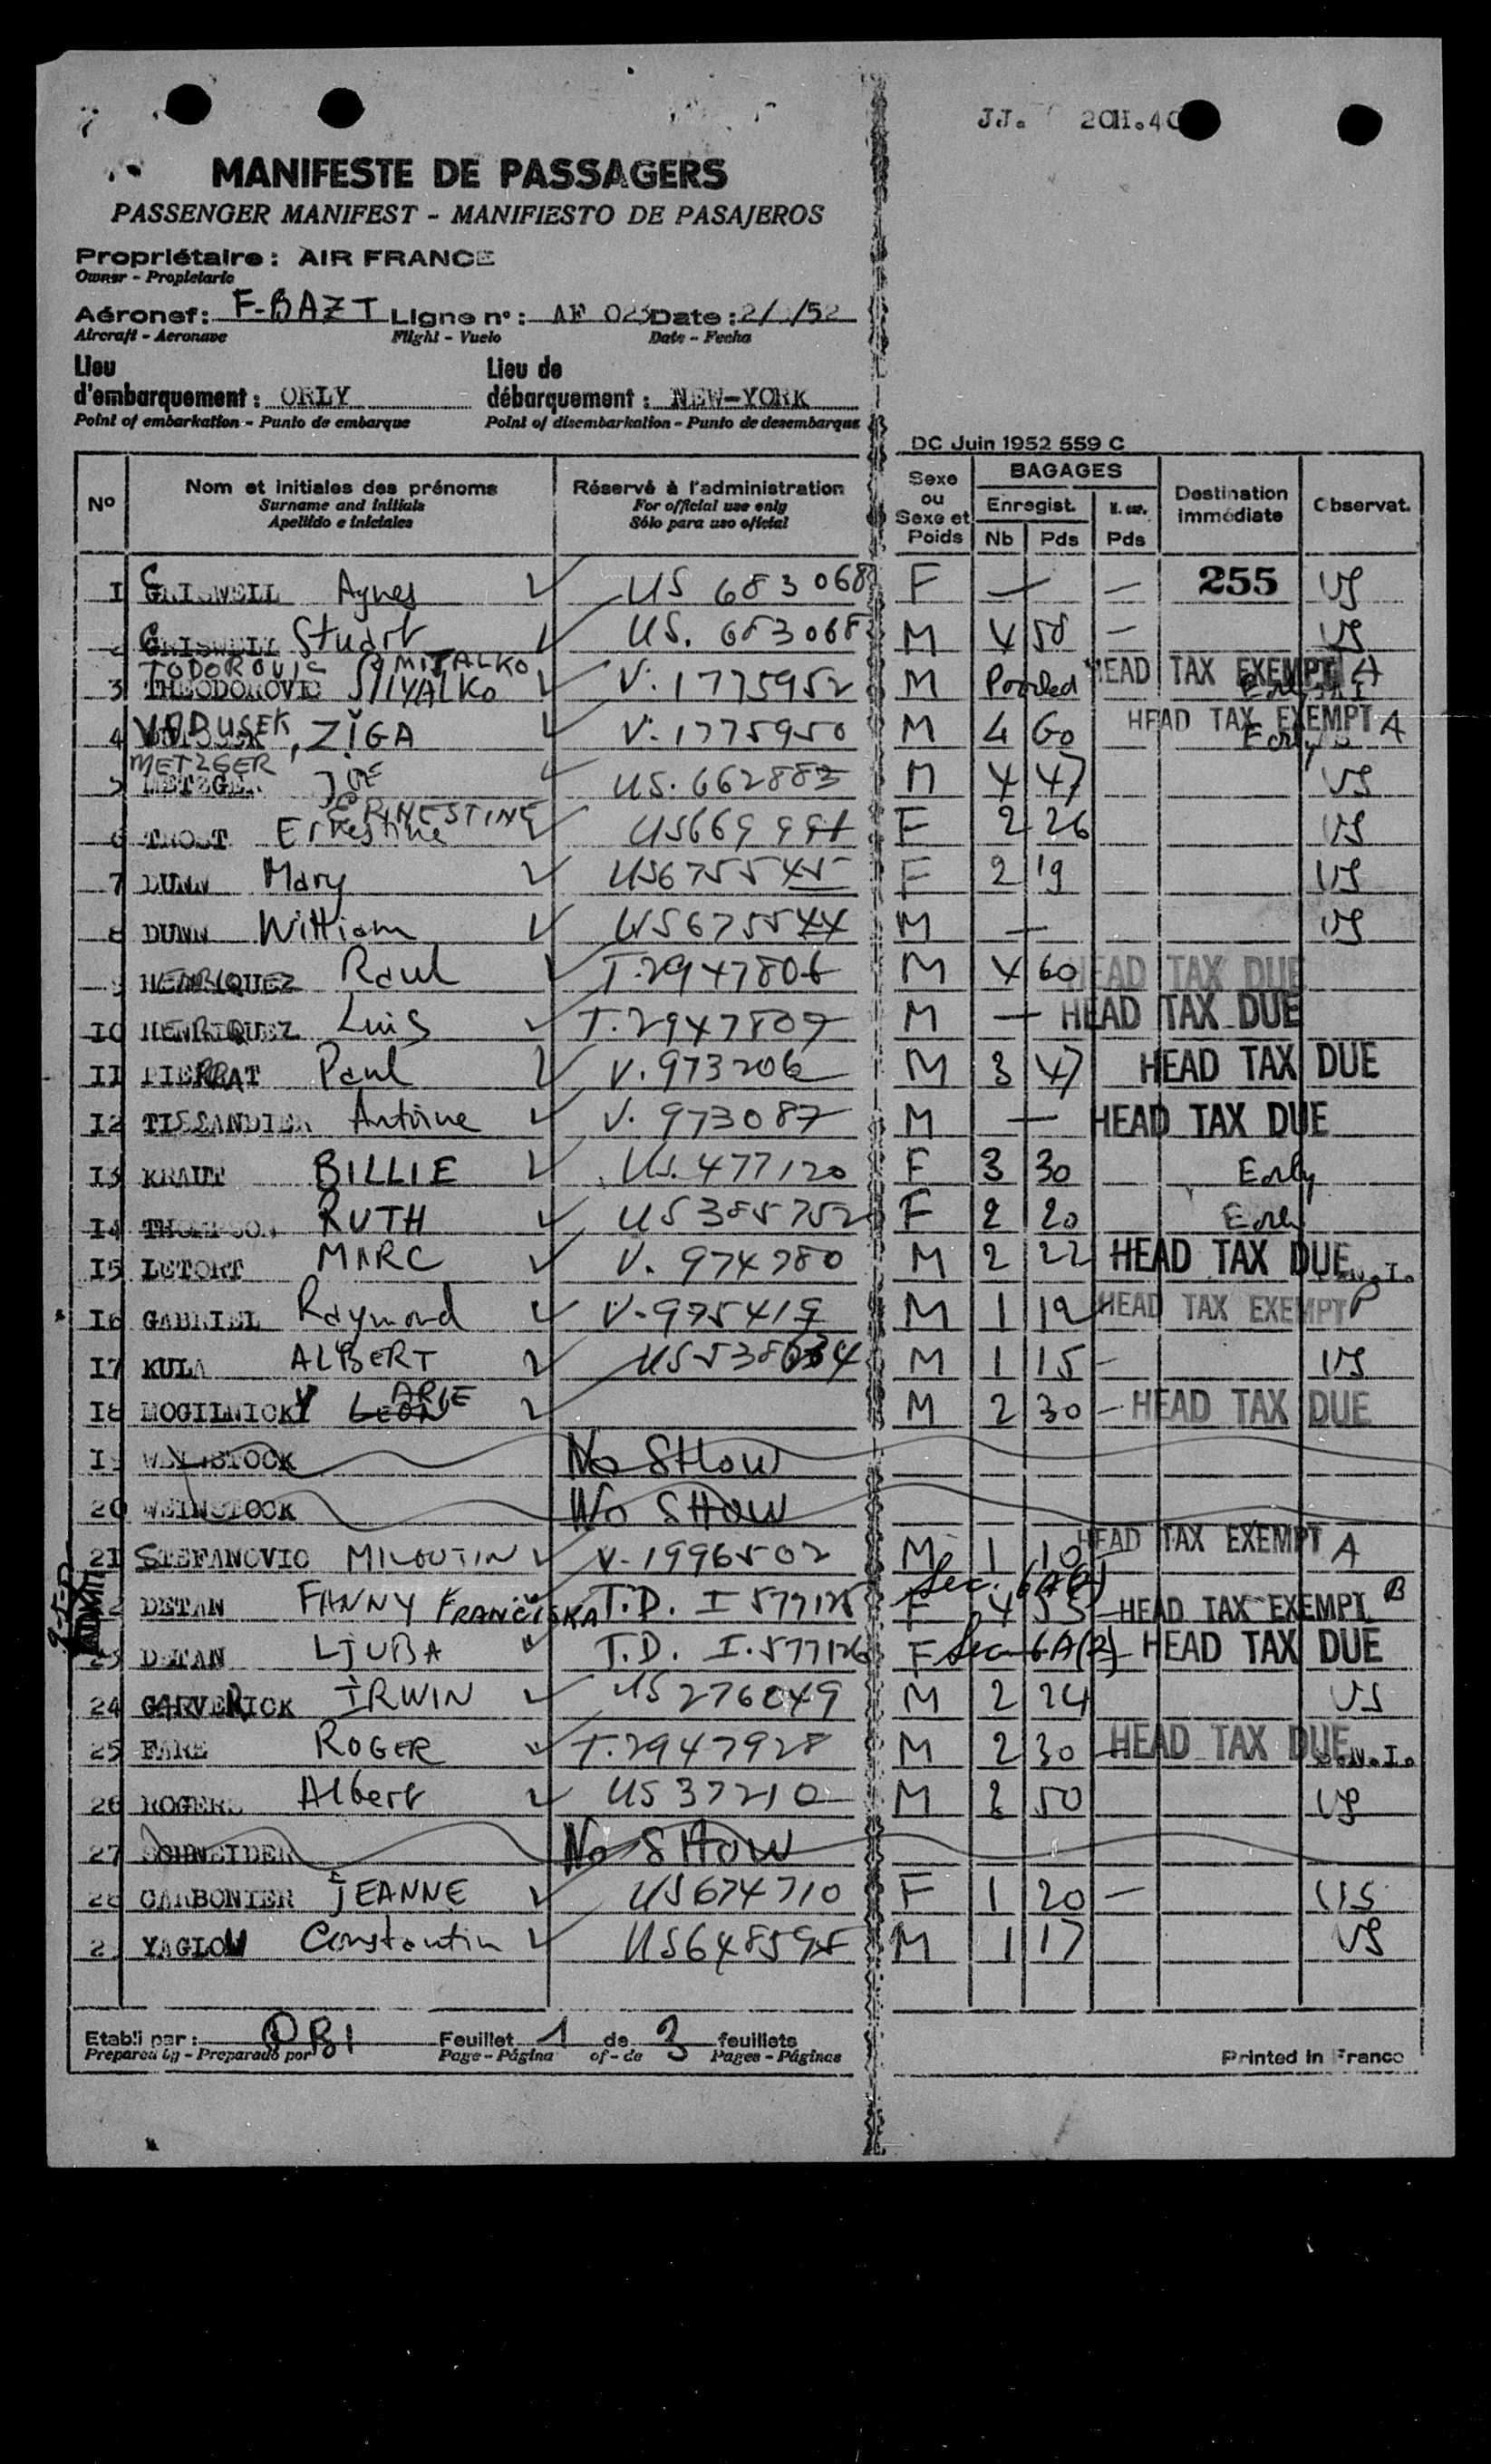 JJ. 20H.40
MANIFESTE DE PASSAGERS
PASSENGER MANIFEST - MANIFIESTO DE PASAJEROS
Propriétaire : AIR FRANCE
Owner - Propietario
Aéronef : F-BAZT Ligne n° : AF 023 Date : 2/ /52
Aircraft - Aeronave Flight - Vuelo Date - Fecha
Lieu d'embarquement : ORLY Lieu de débarquement : NEW-YORK
Point of embarkation - Punto de embarque Point of disembarkation - Punto de desembarque
DC Juin 1952 559 C
N° Nom et initiales des prénoms Réservé à l'administration Sexe ou Sexe et Poids BAGAGES Destination immédiate Observat.
Surname and initials For official use only Enregist.
Apellido e iniciales Sólo para uso oficial Nb Pds Pds
1 Agnes US 683068 F — — 255 US
2 Stuart US. 683068 M 4 58 — US
TODOROVIC MITALKO
3 THEODOROVIC V. 1775952 M Pooled HEAD TAX EXEMPT A
4 VODUSEK, ŽIGA V. 1775950 M 4 60 HEAD TAX EXEMPT A
METZGER
5 METZGER JOE US. 662883 M 4 47 US
ERNESTINE
6 TROST Ernestine US669991 F 2 26 US
7 DUNN Mary US675545 F 2 19 US
8 DUNN William US675544 M — US
9 HENRIQUEZ Raul T.2947806 M 4 60 HEAD TAX DUE
10 HENRIQUEZ Luis T.2947807 M — HEAD TAX DUE
11 PIERRAT Paul V.973206 M 3 47 HEAD TAX DUE
12 TISSANDIER Antoine V. 973087 M — HEAD TAX DUE
13 KRAUT BILLIE US. 477120 F 3 30 Early
14 THOMPSON RUTH US385752 F 2 20 Early
15 LETORT MARC V. 974780 M 2 22 HEAD TAX DUE
16 GABRIEL Raymond V.975419 M 1 12 HEAD TAX EXEMPT
17 KULA ALBERT M 1 15 — US
18 MOGILNICKY LEON ARIE M 2 30 — HEAD TAX DUE
19 WEINSTOCK No SHOW
20 WEINSTOCK No SHOW
21 STEFANOVIC MILOUTIN V-1996502 M 1 10 HEAD TAX EXEMPT A
22 DETAN FANNY FRANČIŠKA T.D. I 577125 F 4 55 Sec. 6A(2) HEAD TAX EXEMPT B
23 DETAN LJUBA T.D. I.577126 F Sec 6A(2) HEAD TAX DUE
24 GARVERICK IRWIN US276049 M 2 24 US
25 FARE ROGER T.2947928 M 2 30 — HEAD TAX DUE
26 ROGERS Albert US37210 M 2 50 US
27 SCHNEIDER No SHOW
28 CARBONIER JEANNE US674710 F 1 20 — US
2 YAGLOW Constantin US648595 M 1 17 US
Etabli par : Feuillet 1 de 3 feuillets
Prepared by - Preparado por Page - Página of - de Pages - Páginas
Printed in France